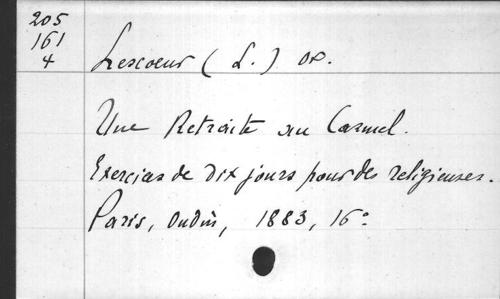 205
161
4
Lescoeur (L.) Or.
Une Retraite au Carmel.
Exercices de Dix jours pour des religieuses.
Paris, Oudin, 1883, 16°